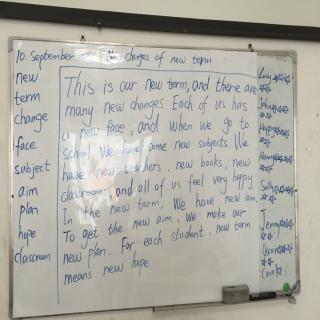 10. September changes of new term
new
term
change
face
subject
aim
plan
hope
classroom
This is our new term, and there are
many new changes. Each of us has
a new face, and when we go to
school We have some new subjects. We
have new teachers, new books, new
classrooms, and all of us feel very happy.
In the new term, We have new aim.
To get the new aim, We make our
new plan. For each student, new term
means new hope
Lucy
John
Sally
Jenny
Oscar
Carol